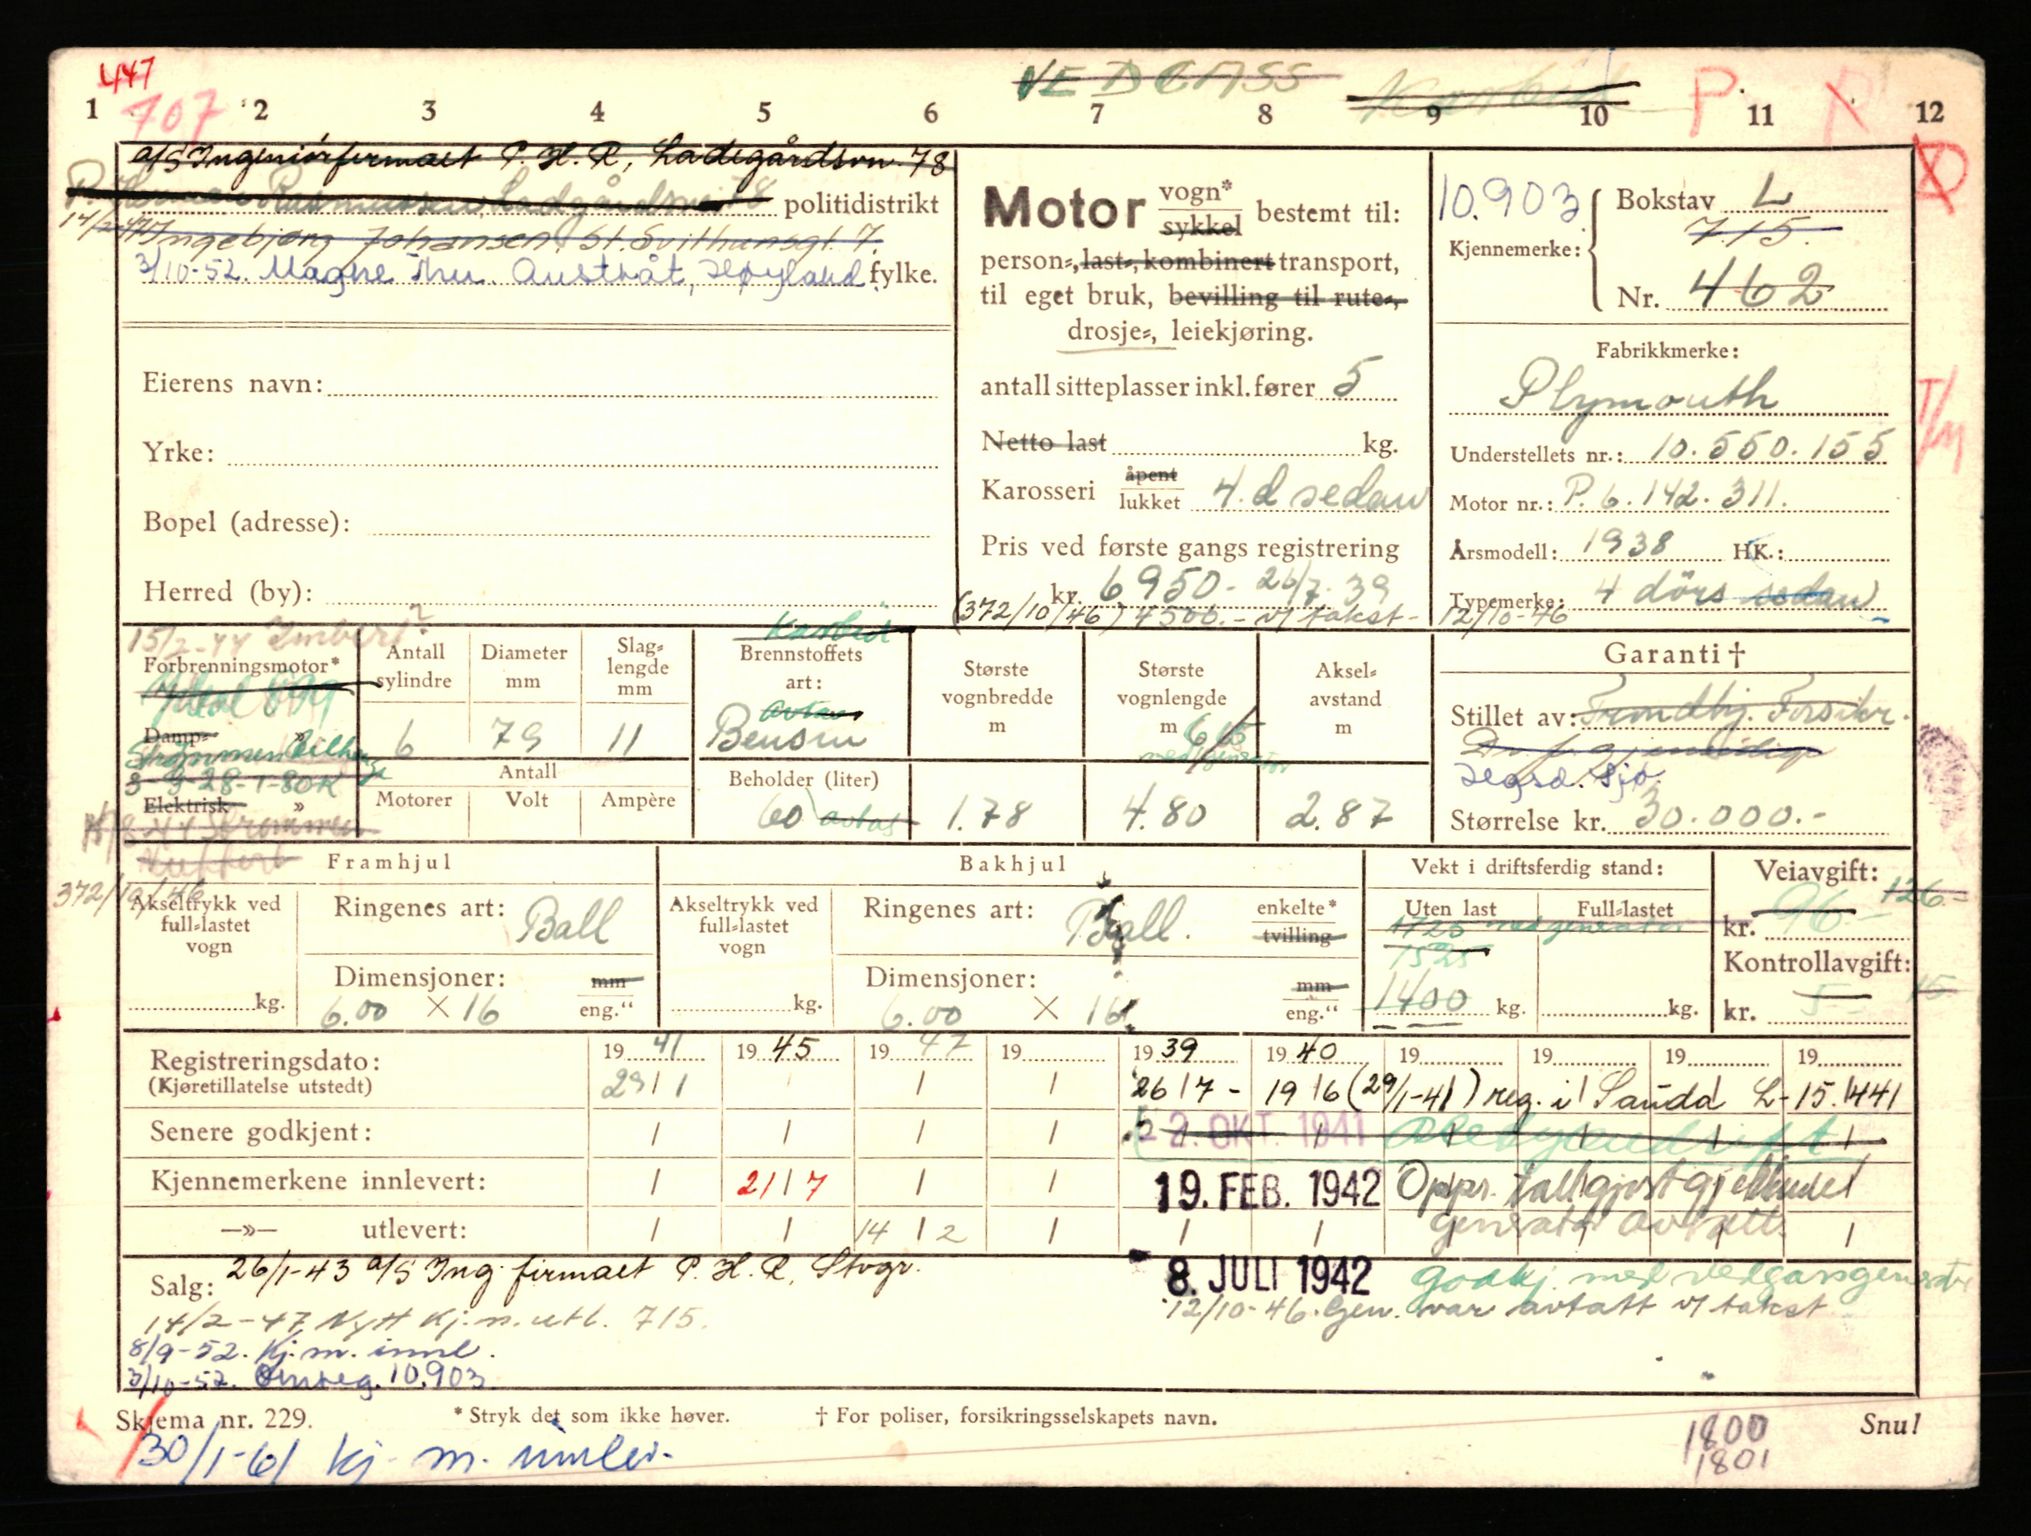 447
VEDGASS Karbid P R
1 707 2 3 4 5 6 7 8 9 10 11 12
a/s Ingeniörfirmaet P. H. R, Ladegårdsvn. 78
Rasmussen Ladgårdsvei 78 politidistrikt
14/2-47 Ingebjørg Johansen. St. Svithunsgt. 7.
3/10-52. Magne Thu. Austråt, Høyland. fylke.
Eierens navn:
Yrke:
Bopel (adresse):
Herred (by):
Motor vogn* sykkel bestemt til:
person-, last-, kombinert transport,
til eget bruk, bevilling til rute-,
drosje-, leiekjøring.
antall sitteplasser inkl. fører 5
Netto last kg.
Karosseri åpent lukket 4. d sedan
Pris ved første gangs registrering
kr. 6950- 26/7-39
(372/10/46) 4500.- v/ takst- 12/10-46
10.903 Bokstav L
715.
Kjennemerke:
Nr. 462
Fabrikkmerke:
Plymouth
Understellets nr.: 10.550.155
Motor nr.: P. 6. 142. 311.
Årsmodell: 1938 HK.:
Typemerke: 4 dörs sedan
T/M
15/2-44 Imbert?
Forbrenningsmotor*
Damp- »
Strømmen
3-9-28-1-80K
Elektrisk »
Strømmen
372/10/46
Antall sylindre
6
Diameter mm
79
Slag-lengde mm
11
Antall
Motorer Volt Ampère
Karbid
Brennstoffets art:
Bensin
Beholder (liter)
60 avtas
Største vognbredde m
1.78
Største vognlengde m
615
med generator
4.80
Aksel-avstand m
2.87
Garanti †
Stillet av: Trondhj. Forsikr.
Størrelse kr. 30.000.-
Framhjul
Akseltrykk ved full-lastet vogn
kg.
Ringenes art: Ball
Dimensjoner: mm
6.00 × 16 eng."
Bakhjul
Akseltrykk ved full-lastet vogn
kg.
Ringenes art: Ball. enkelte* tvilling
Dimensjoner: mm
6.00 × 16 eng."
Vekt i driftsferdig stand:
Uten last Full-lastet
1725 med generator
1525
1400 kg. kg.
Veiavgift: 126.-
kr. 96.-
Kontrollavgift: 15
kr. 5-
Registreringsdato: 19 41 19 45 19 47 19 19 39 19 40 19 19 19 19
(Kjøretillatelse utstedt) 29/1 26/7- 19/6 (29/1-41) reg. i Sauda L-15.441
Senere godkjent: 2. OKT. 1941
Kjennemerkene innlevert: 21/7 19. FEB. 1942 Oppr. tall gjort gjeldende
—»— utlevert: 14/2 generator avsett.
Salg: 26/1-43 a/s Ing. firmaet P. H. R, Stvgr. 8. JULI 1942 godkj. med vedgassgenerator
14/2-47 Nytt kj.m. utl. 715. 12/10-46. Gen. var avtatt v/ takst
8/9-52. Kj. m. innl.
3/10-52. Omreg. 10.903
Skjema nr. 229. * Stryk det som ikke høver. † For poliser, forsikringsselskapets navn. Snu!
30/1-61 kj. m. innlev. 1800
1801